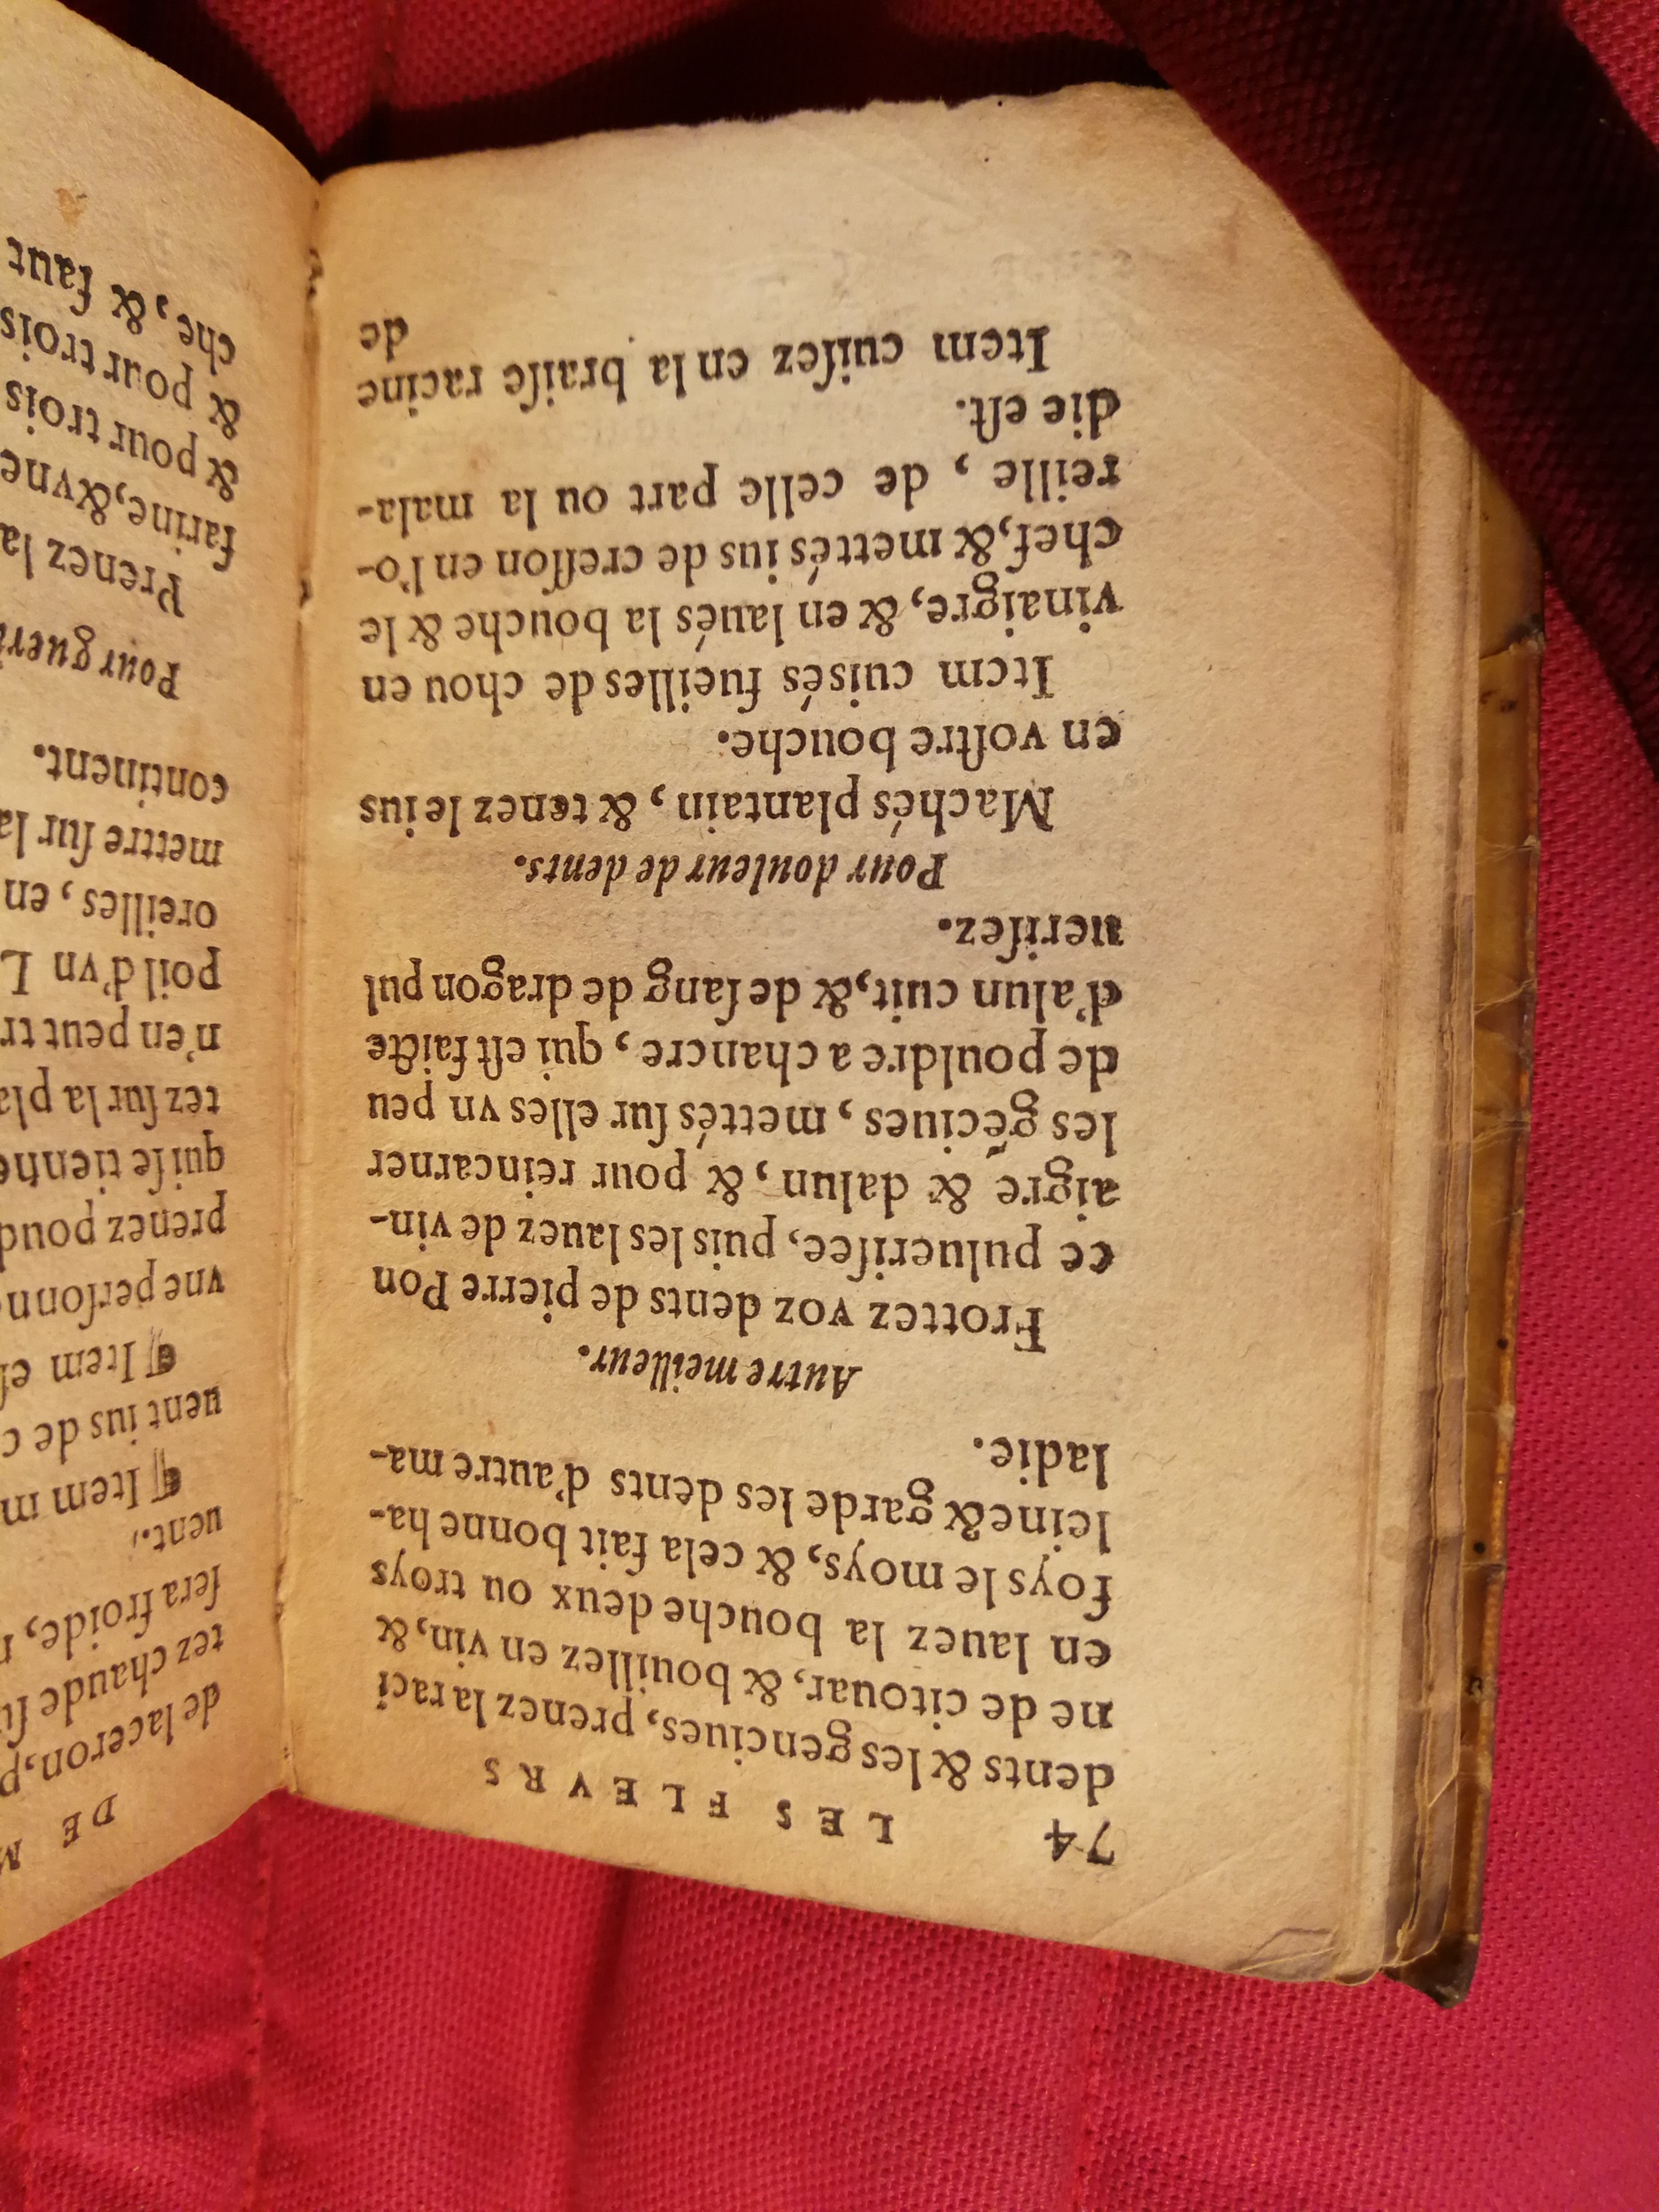 74 LES FLEVRS
dents & les genciues, prenez la raci
ne de citouar, & bouillez en vin, &
en lauez la bouche deux ou troys
foys le moys, & cela fait bonne ha-
leine & garde les dents d'autre ma-
ladie.
Autre meilleur.
Frottez voz dents de pierre Pon
ce pulueriſee, puis les lauez de vin-
aigre & dalun, & pour reincarner
les gēciues, mettés ſur elles vn peu
de pouldre a chancre, qui eſt faicte
d'alun cuit, & de ſang de dragon pul
ueriſez.
Pour douleur de dents.
Machés plantain, & tenez le ius
en voſtre bouche.
Item cuisés fueilles de chou en
vinaigre, & en laués la bouche & le
chef, & mettés ius de creſſon en l'o-
reille, de celle part ou la mala-
die eſt.
Item cuiſez en la braiſe racine
de
DE M
de laceron, p
tez chaude ſu
ſera froide, r
uent.
¶ Item m
uent ius de c
¶ Item eſ
vne perſonne
prenez poud
qui ſe tienne
tez ſur la pla
n'en peut tr
poil d'vn L
oreilles, en
mettre ſur la
continent.
Pour gueri
Prenez la
farine, & vne
& pour trois
& pour trois
che, & faut